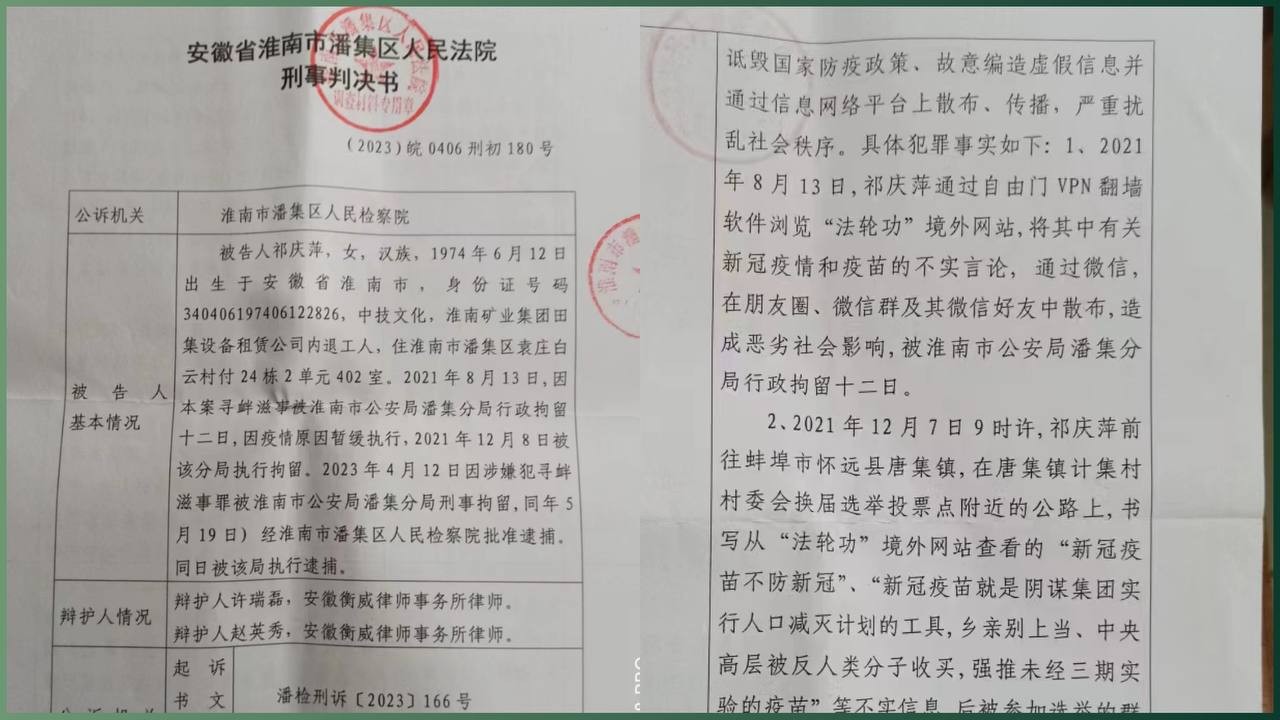 安徽省淮南市潘集区人民法院
刑事判决书
（2023）皖 0406 刑初 180 号
公诉机关
淮南市潘集区人民检察院
被告人
基本情况
被告人祁庆萍，女，汉族，1974 年 6 月 12 日
出生于安徽省淮南市，身份证号码
340406197406122826，中技文化，淮南矿业集团田
集设备租赁公司内退工人，住淮南市潘集区袁庄白
云村付 24 栋 2 单元 402 室。2021 年 8 月 13 日，因
本案寻衅滋事被淮南市公安局潘集分局行政拘留
十二日，因疫情原因暂缓执行，2021 年 12 月 8 日被
该分局执行拘留。2023 年 4 月 12 日因涉嫌犯寻衅
滋事罪被淮南市公安局潘集分局刑事拘留，同年 5
月 19 日）经淮南市潘集区人民检察院批准逮捕。
同日被该局执行逮捕。
辩护人情况
辩护人许瑞磊，安徽衡威律师事务所律师。
辩护人赵英秀，安徽衡威律师事务所律师。
公诉机关
起诉
书文
潘检刑诉〔2023〕166 号
诋毁国家防疫政策、故意编造虚假信息并
通过信息网络平台上散布、传播，严重扰
乱社会秩序。具体犯罪事实如下：1、2021
年 8 月 13 日，祁庆萍通过自由门 VPN 翻墙
软件浏览“法轮功”境外网站，将其中有关
新冠疫情和疫苗的不实言论，通过微信，
在朋友圈、微信群及其微信好友中散布，造
成恶劣社会影响，被淮南市公安局潘集分
局行政拘留十二日。
2、2021 年 12 月 7 日 9 时许，祁庆萍前
往蚌埠市怀远县唐集镇，在唐集镇计集村
村委会换届选举投票点附近的公路上，书
写从“法轮功”境外网站查看的“新冠疫
苗不防新冠”、“新冠疫苗就是阴谋集团实
行人口减灭计划的工具，乡亲别上当、中央
高层被反人类分子收买，强推未经三期实
验的疫苗”等不实信息，后被参加选举的群